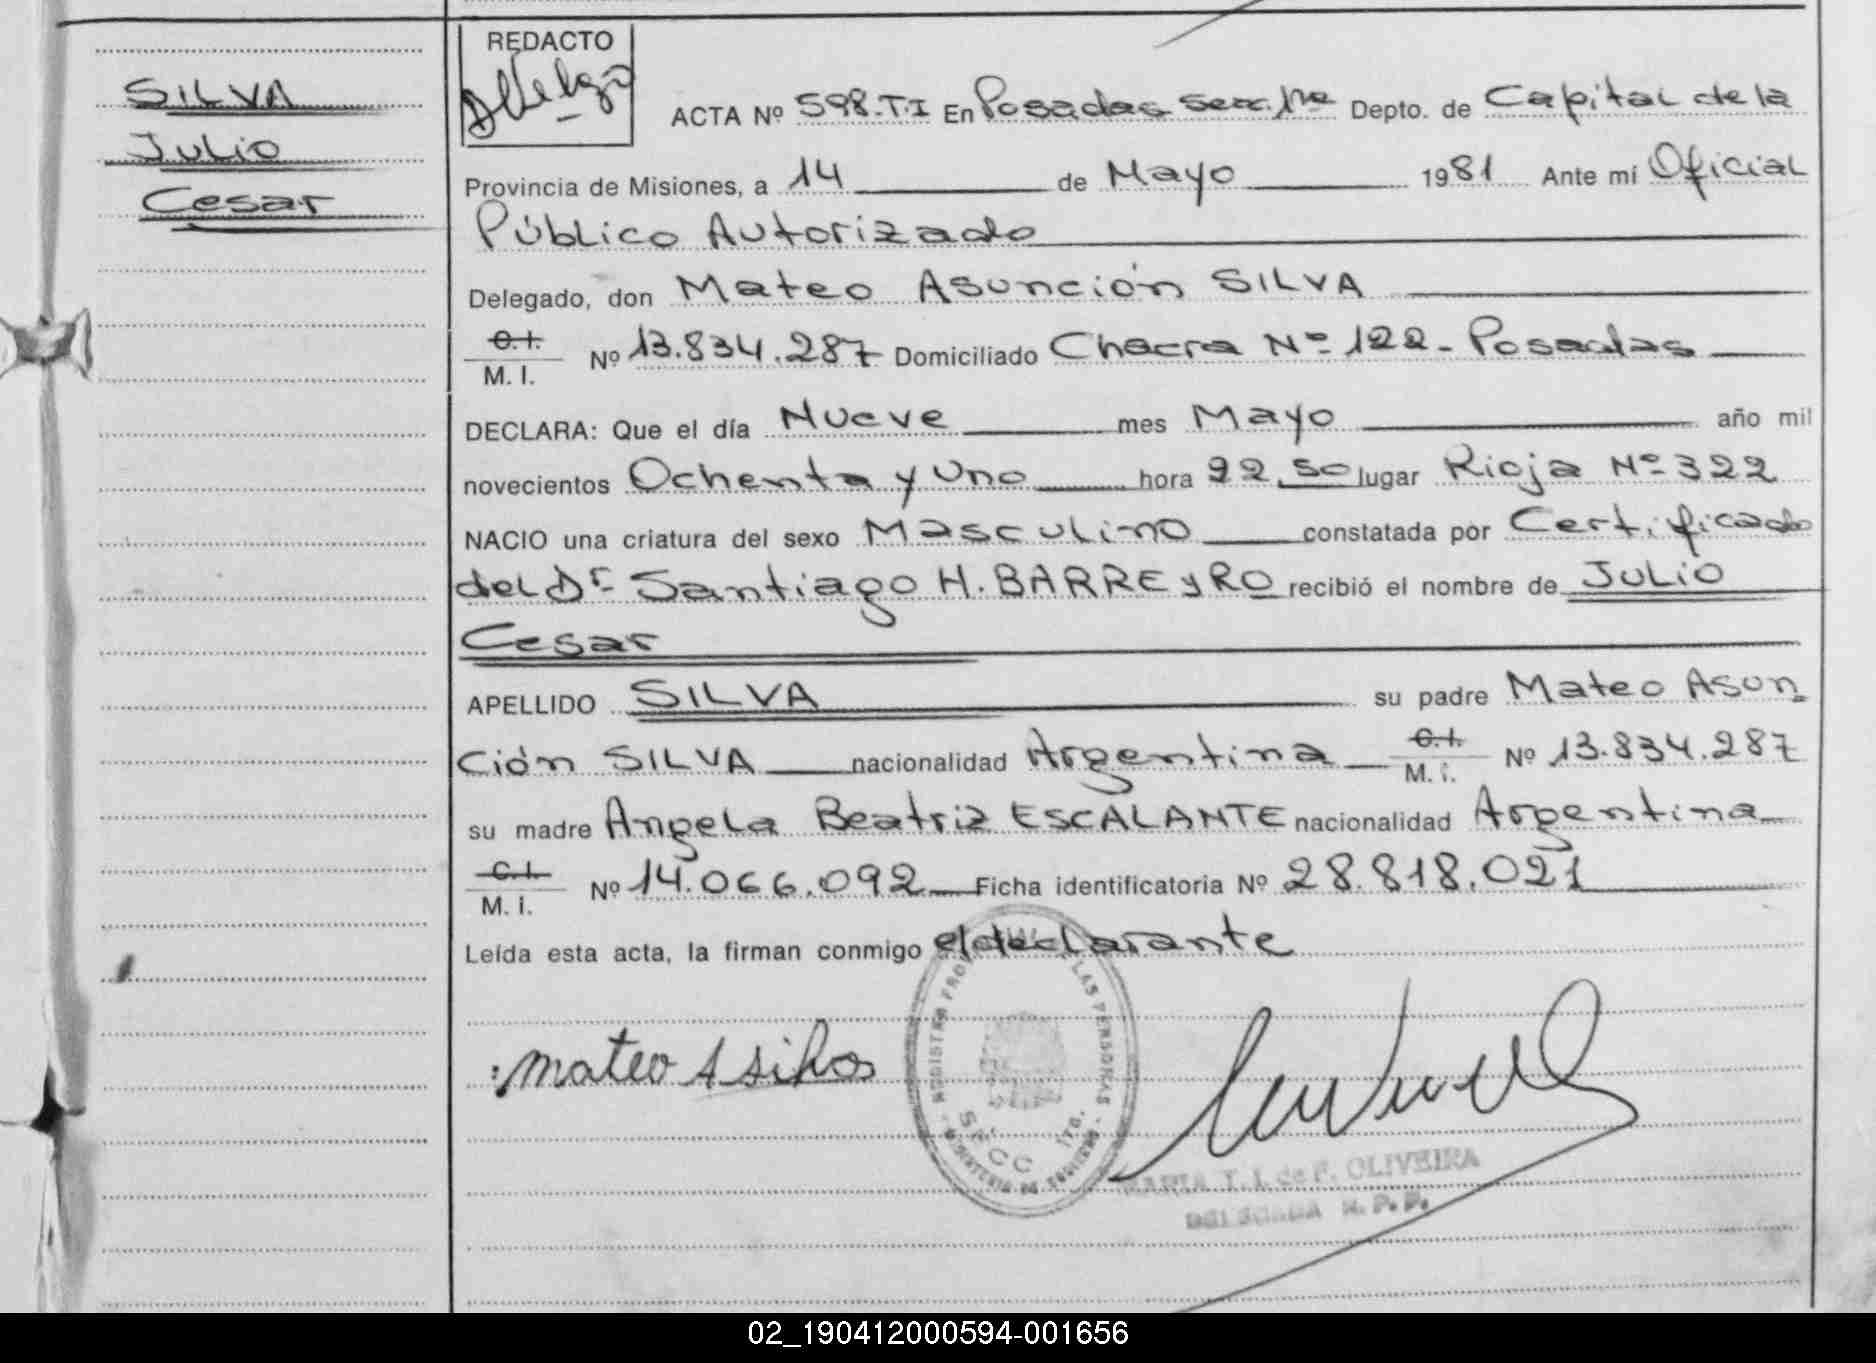 SILVA
Julio
Cesar
REDACTO
ACTA Nº 598.T.I En Posadas Secc. 1ra Depto. de Capital de la
Provincia de Misiones, a 14 de Mayo 1981 Ante mí Oficial
Público Autorizado
Delegado, don Mateo Asunción SILVA
C.I.
M. I. Nº 13.834.287 Domiciliado Chacra Nº 122 - Posadas
DECLARA: Que el día Nueve mes Mayo año mil
novecientos Ochenta y Uno hora 22,50 lugar Rioja Nº 322
NACIO una criatura del sexo Masculino constatada por Certificado
del Dr Santiago H. BARREyRO recibió el nombre de Julio
Cesar
APELLIDO SILVA su padre Mateo Asun
ción SILVA nacionalidad Argentina C.I. M. I. Nº 13.834.287
su madre Angela Beatriz ESCALANTE nacionalidad Argentina
C.I.
M. I. Nº 14.066.092 Ficha identificatoria Nº 28.818.021
Leída esta acta, la firman conmigo el declarante
mateo A silva
REGISTRO LAS PERSONAS
MARIA T. I. de F. OLIVEIRA
DELEGADA R. P. P.
02_190412000594-001656